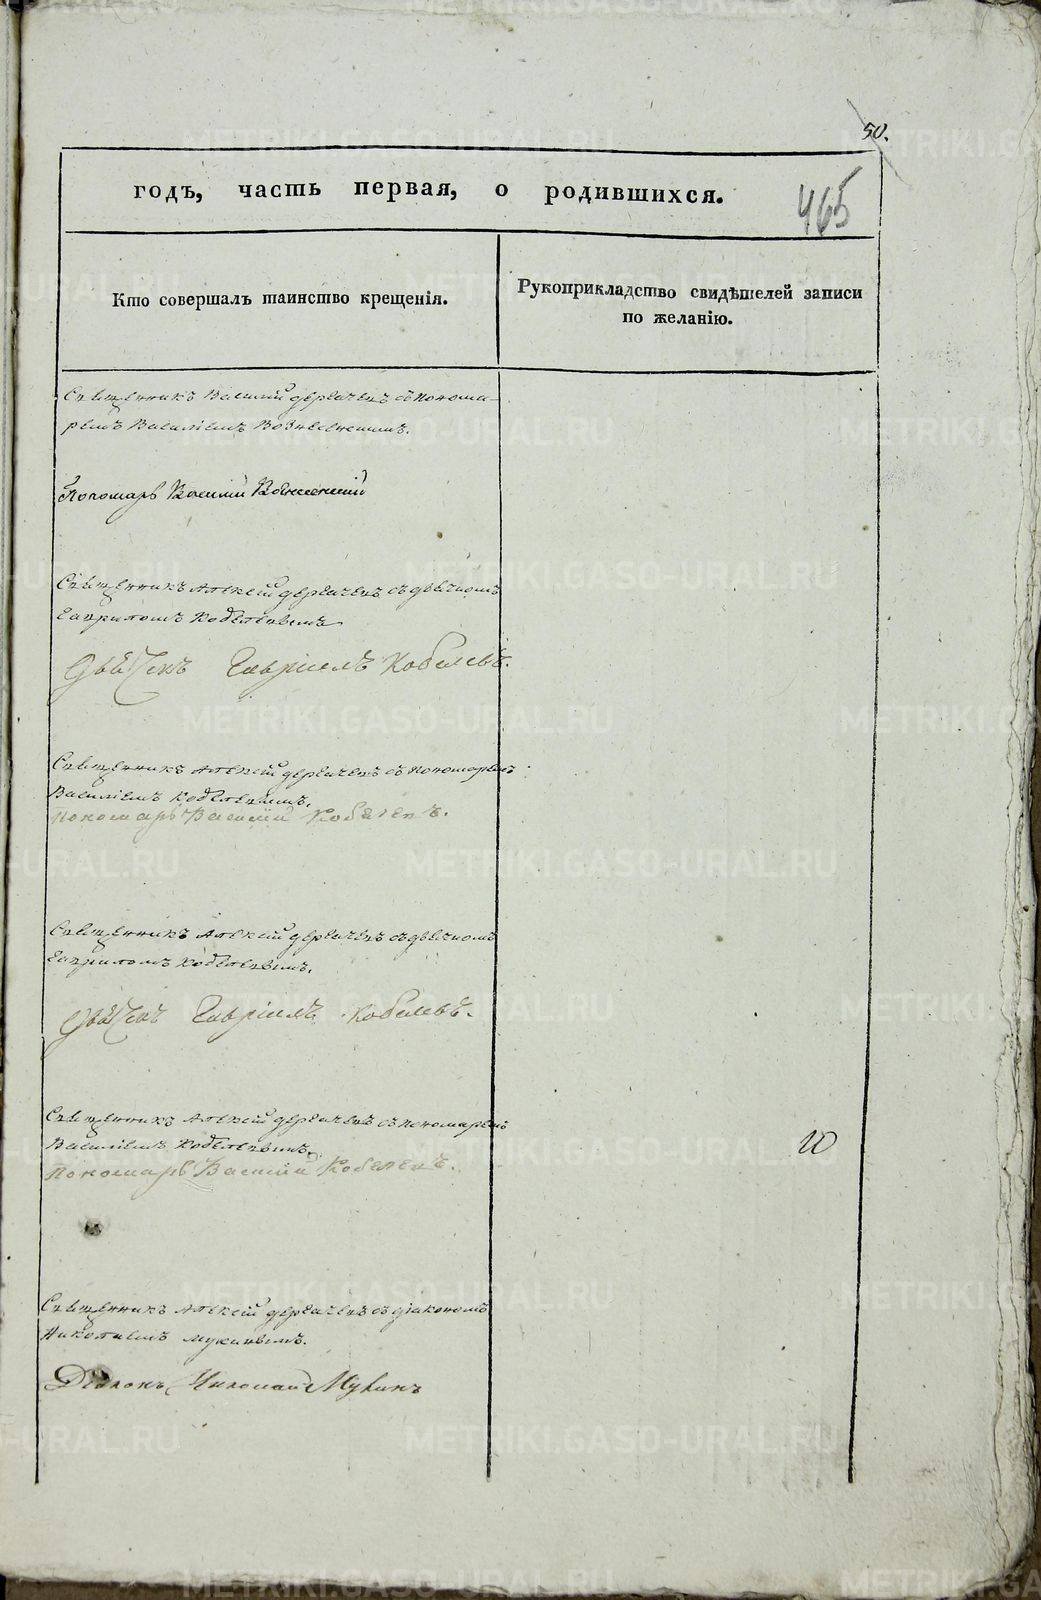 50.
годъ, часть первая, о родившихся.
465
Кто совершалъ таинство крещенія.
Рукоприкладство свидѣтелей записи
по желанію.
Священникъ Василій Дерячевъ съ понома-
ремъ Василіемъ Вознесенскимъ.
Пономарь Василій Вознесенскій
Священникъ Алексій Дерячевъ съ дьячкомъ
Гавриломъ Кобелевымъ
Дьячекъ Гавріилъ Кобелевъ.
Священникъ Алексій Дерячевъ съ пономаремъ
Василіемъ Кобелевымъ.
Пономарь Василій Кобелевъ.
Священникъ Алексій Дерячевъ съ дьячкомъ
Гавриломъ Кобелевымъ.
Дьячекъ Гавріилъ Кобелевъ.
Священникъ Алексій Дерячевъ съ пономаремъ
Василіемъ Кобелевымъ.
Пономарь Василій Кобелевъ.
Священникъ Алексій Дерячевъ съ діакономъ
Николаемъ Мукинымъ.
Діаконъ Николай Мукинъ
METRIKI.GASO-URAL.RU